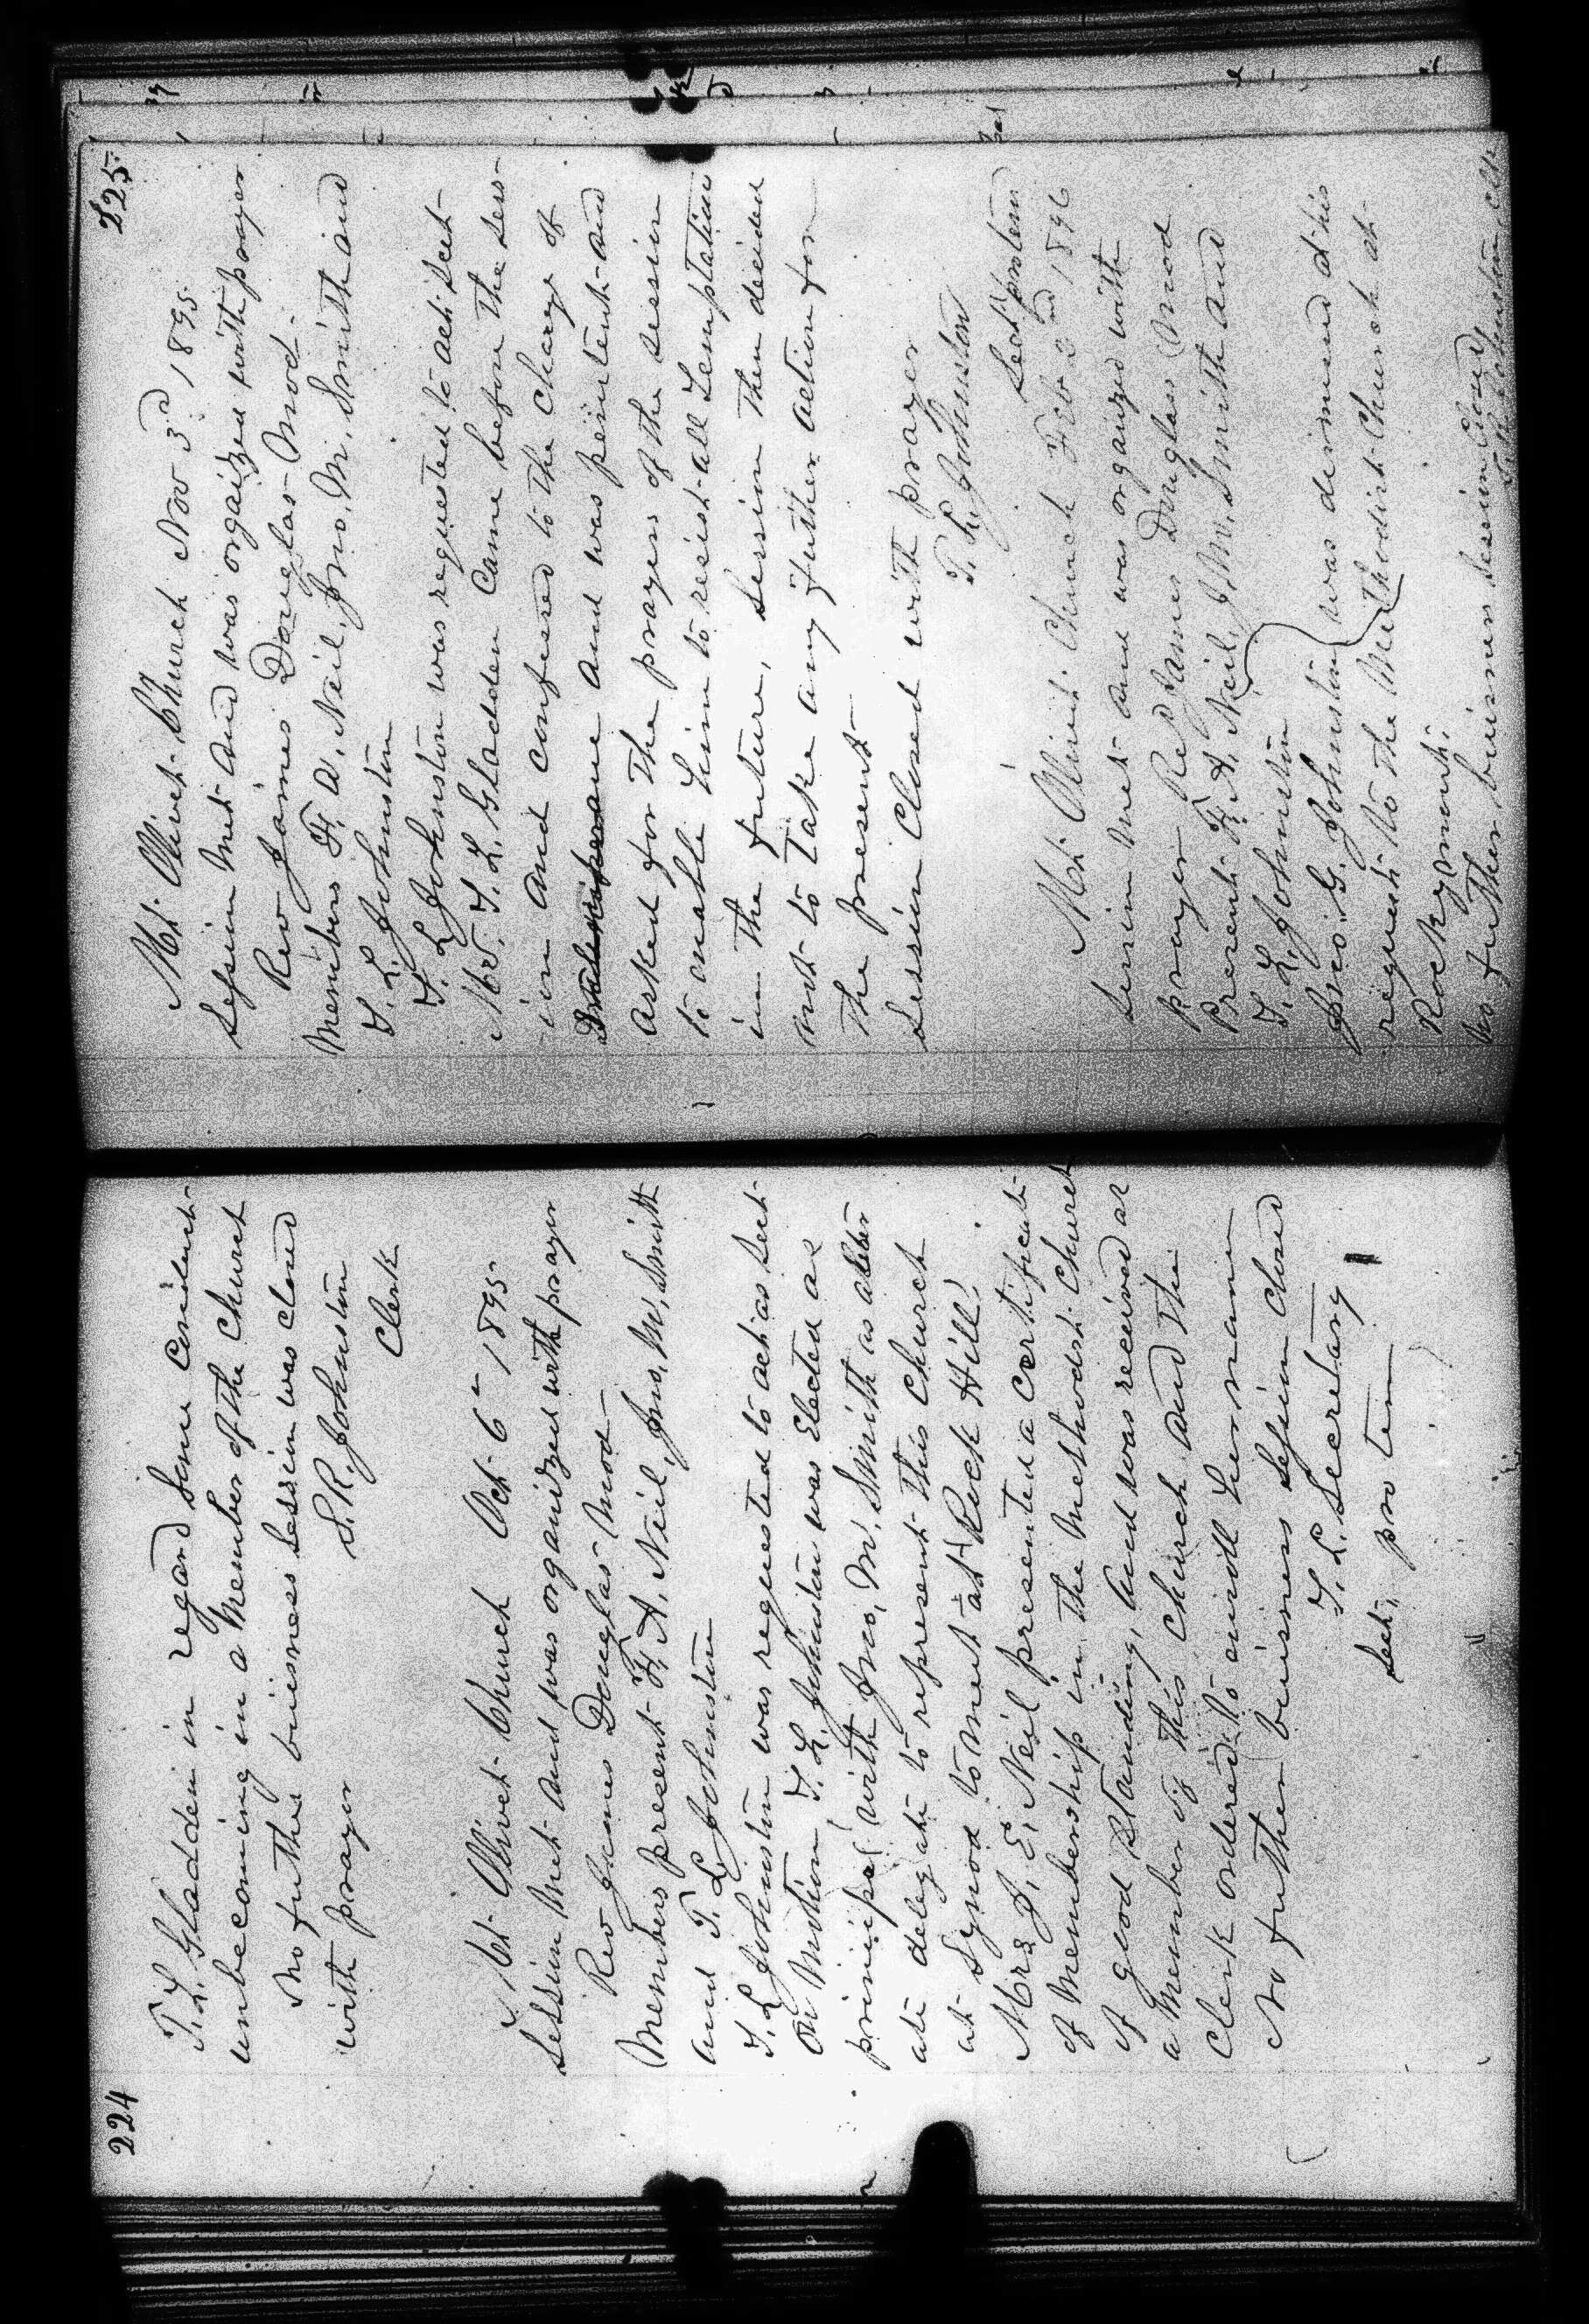 224
T. L. Gladden in regard some conduct
unbecoming in a member of the Church
No futher buisness session was closed
with prayer
S. R. Johnston
Clerk
Mt Olivet Church Oct 6" 1895
Session Met and was organized with prayer
Rev James Douglas Mod
Members present F. A. Neil, Jno. M. Smith
and T. L. Johnston
T. L Johnston was requested to act as Sect
On Motion T. L. Johnston was Elected as
principal with Jno. M. Smith as alter
ate delegate to represent this Church
at Synod to meet at Rock Hill.
Mrs J. E. Neil presented a certificate
of Membership in the Methodist Church
of good standing, and was received as
a member of this Church and the
Clerk ordered to enroll her name
No futher buisness Session Closed
T. L. Secretary
Sect. pro tem
225
Mt Olivet Church Nov 3rd 1895
Session Met and was orgaized with prayer
Rev James Douglas Mod.
Members F. A. Neil, Jno. M. Smith and
T. L. Johnston
T. L Johnston was requested to act Sect
Mr. T. L. Gladden Came before the Sess-
ion and confessed to the Charge of
and was penitent and
Asked for the prayers of the session
to enable him to resist all Temptation
in the future, Session then decided
not to take any futher action for
the present
Session Closed with prayer
T. L. Johnston
Sect protem
Mt Olivet Church Feb 2nd 1896
Session Met and was organized with
prayer Rev James Douglass Mod
Present F. A. Neil, J M. Smith and
T. L. Johnston
Jno. G. Johnston was dismissed at his
request to the Methodist Church at
Rocky mount.
No futher buisness Session Closed
Johnston Clk